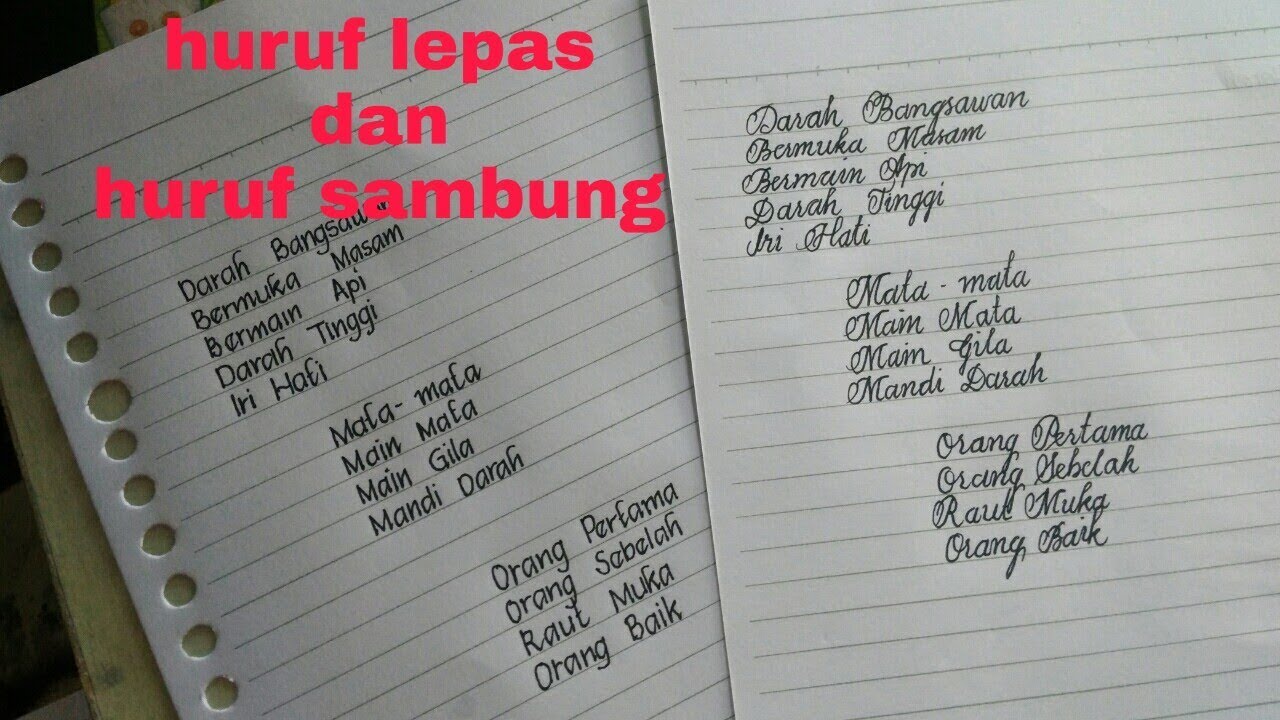 huruf lepas
dan
huruf sambung
Darah Bangsawan
Bermuka Masam
Bermain Api
Darah Tinggi
Iri Hati
Mata-mata
Main Mata
Main Gila
Mandi Darah
Orang Pertama
Orang Sebelah
Raut Muka
Orang Baik
Darah Bangsawan
Bermuka Masam
Bermain Api
Darah Tinggi
Iri Hati
Mata - mata
Main Mata
Main Gila
Mandi Darah
Orang Pertama
Orang Sebelah
Raut Muka
Orang Baik